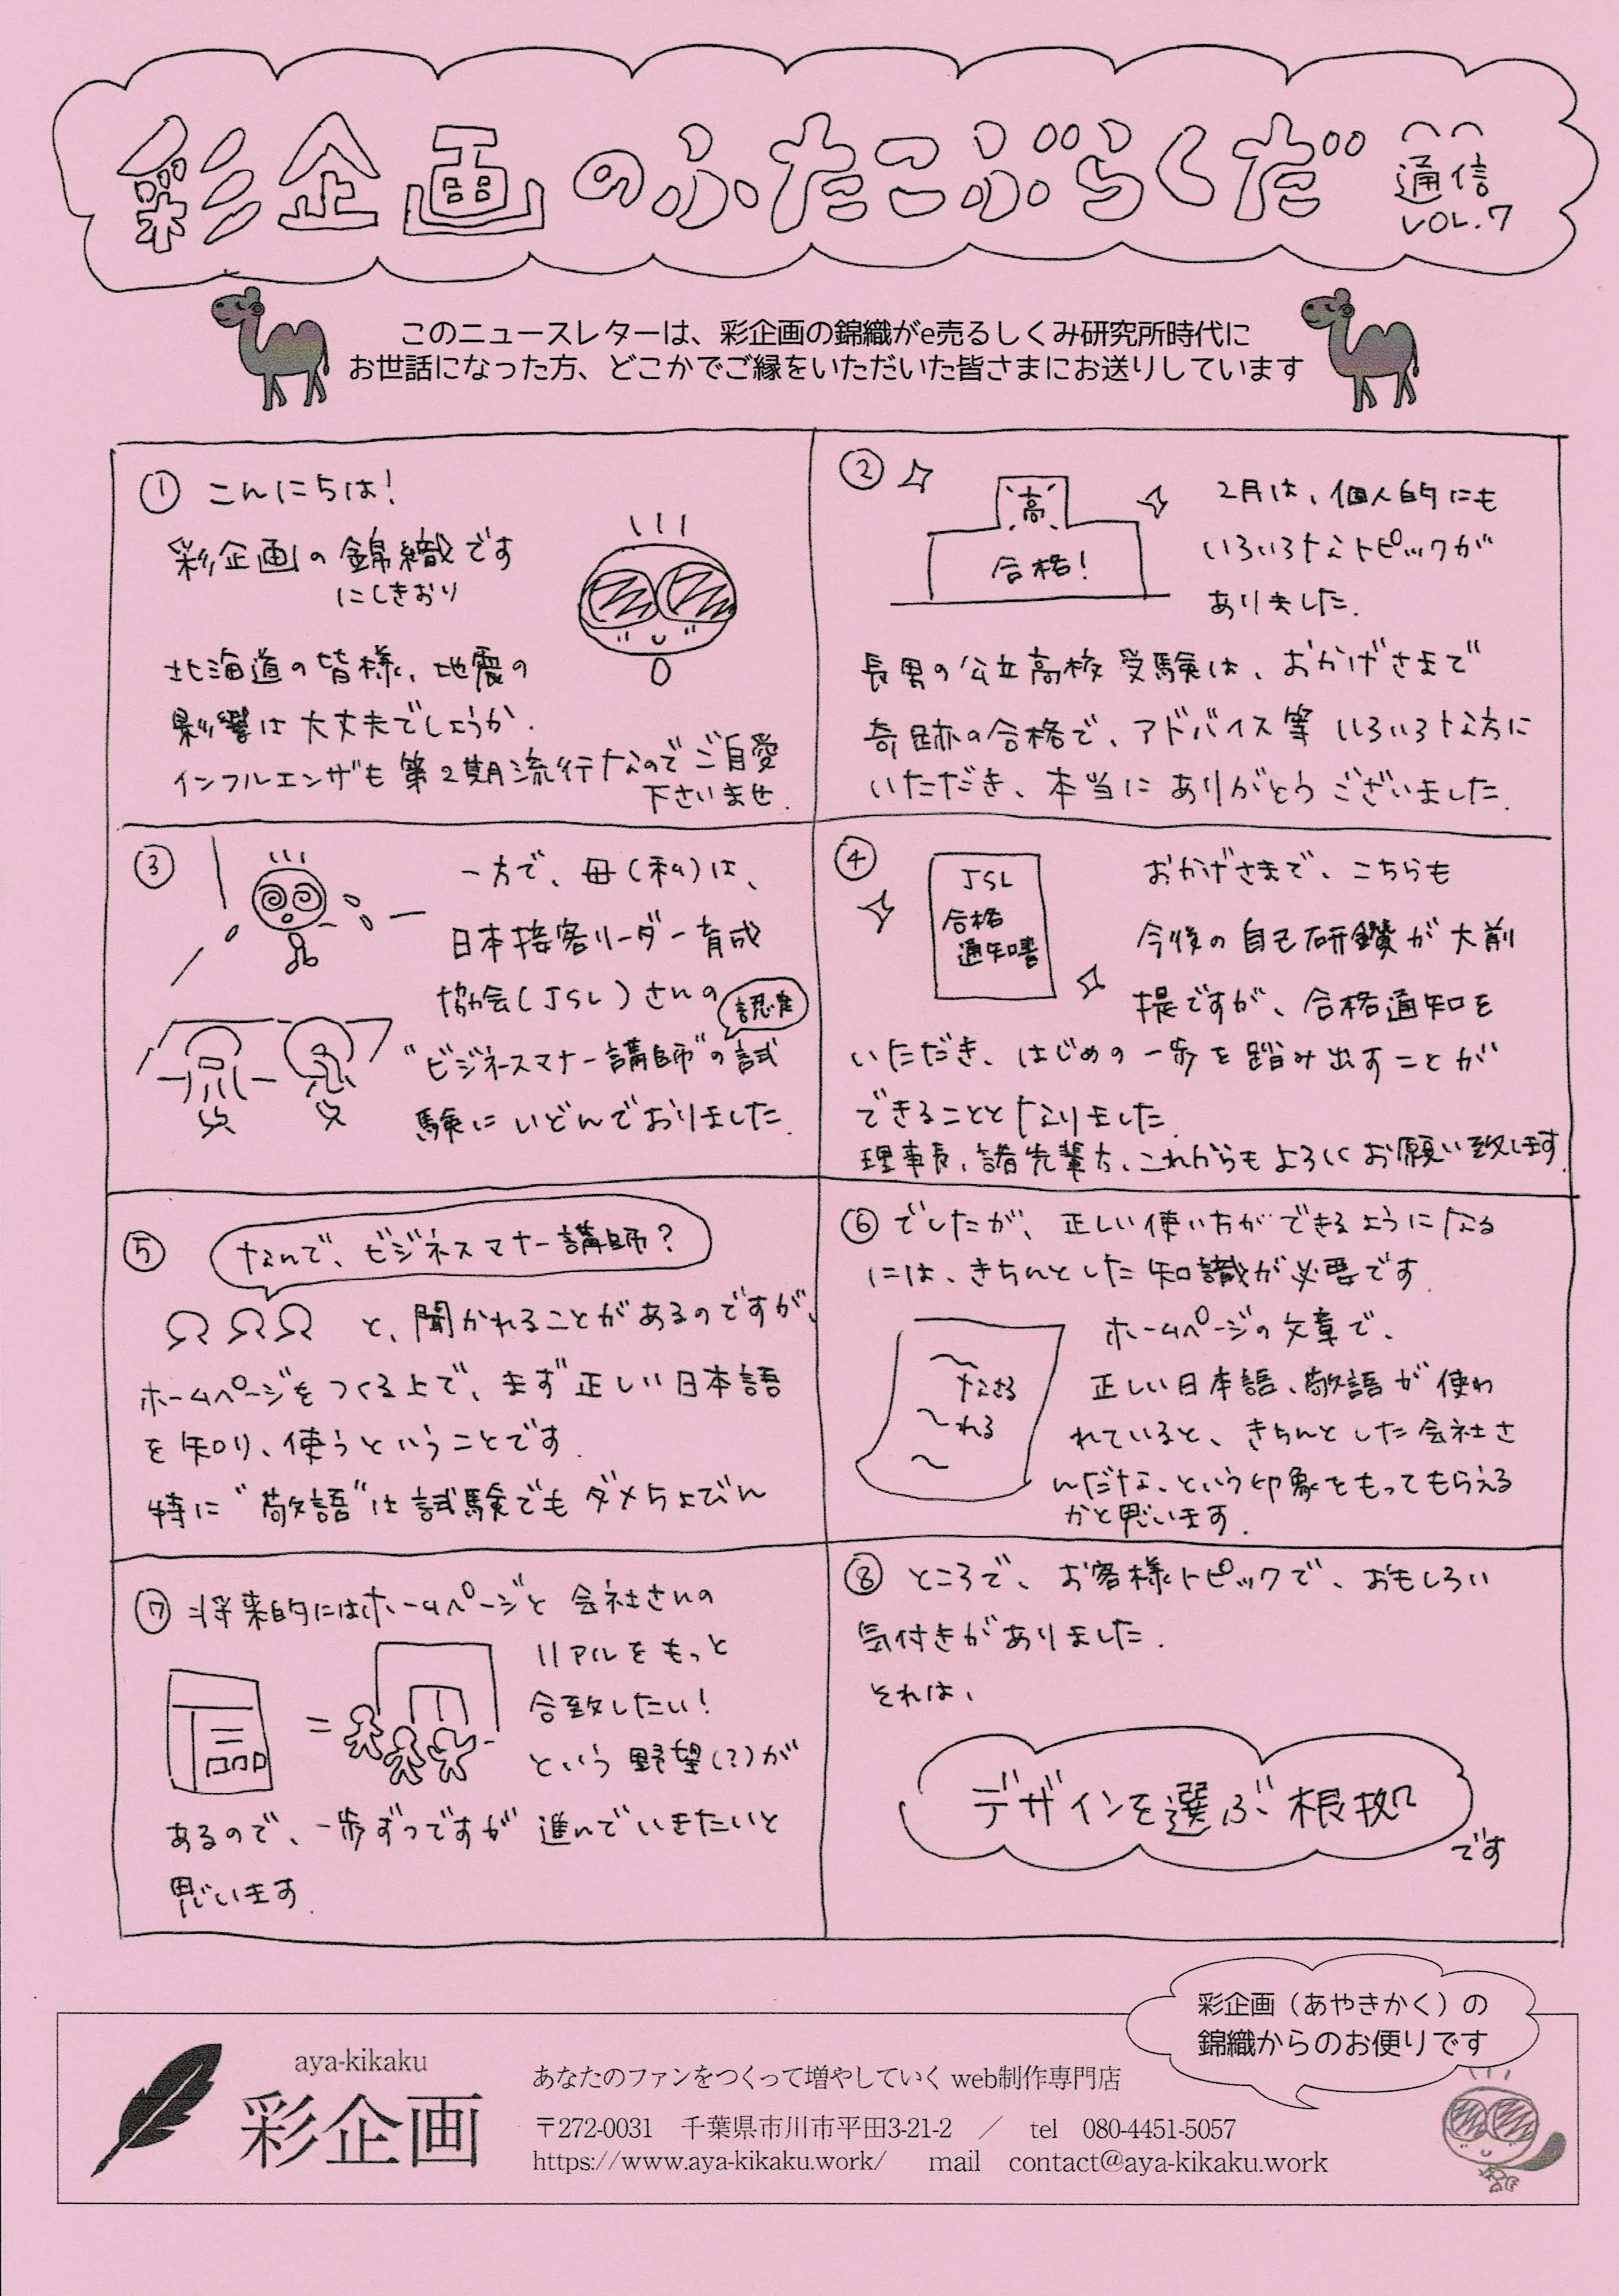 彩企画のふたこぶらくだ
通信
VOL.7
このニュースレターは、彩企画の錦織がe売るしくみ研究所時代に
お世話になった方、どこかでご縁をいただいた皆さまにお送りしています
① こんにちは!
彩企画の錦織です
にしきおり
北海道の皆様、地震の
影響は大丈夫でしょうか.
インフルエンザも第2期流行なのでご自愛
下さいませ.
②
高
合格!
2月は、個人的にも
いろいろなトピックが
ありました.
長男の公立高校受験は、おかげさまで
奇跡の合格で、アドバイス等いろいろな方に
いただき、本当にありがとうございました.
③
一方で、母(私)は、
日本接客リーダー育成
協会(JSL)さんの
認定
"ビジネスマナー講師"の試
験にいどんでおりました.
④
JSL
合格
通知書
おかげさまで、こちらも
今後の自己研鑽が大前
提ですが、合格通知を
いただき、はじめの一歩を踏み出すことが
できることとなりました.
理事長、諸先輩方、これからもよろしくお願い致します.
⑤
なんで、ビジネスマナー講師?
と、聞かれることがあるのですが、
ホームページをつくる上で、まず正しい日本語
を知り、使うということです.
特に"敬語"は試験でもダメちょびん
⑥ でしたが、正しい使い方ができるようになる
には、きちんとした知識が必要です.
〜なさる
〜れる
〜
ホームページの文章で、
正しい日本語、敬語が使わ
れていると、きちんとした会社さ
んだな、という印象をもってもらえる
かと思います.
⑦ 将来的にはホームページと会社さんの
=
リアルをもっと
合致したい!
という野望(?)が
あるので、一歩ずつですが進んでいきたいと
思います.
⑧ ところで、お客様トピックで、おもしろい
気付きがありました.
それは、
デザインを選ぶ根拠
です
彩企画（あやきかく）の
錦織からのお便りです
aya-kikaku
彩企画
あなたのファンをつくって増やしていく web制作専門店
〒272-0031　千葉県市川市平田3-21-2　／　tel　080-4451-5057
https://www.aya-kikaku.work/　mail　contact@aya-kikaku.work